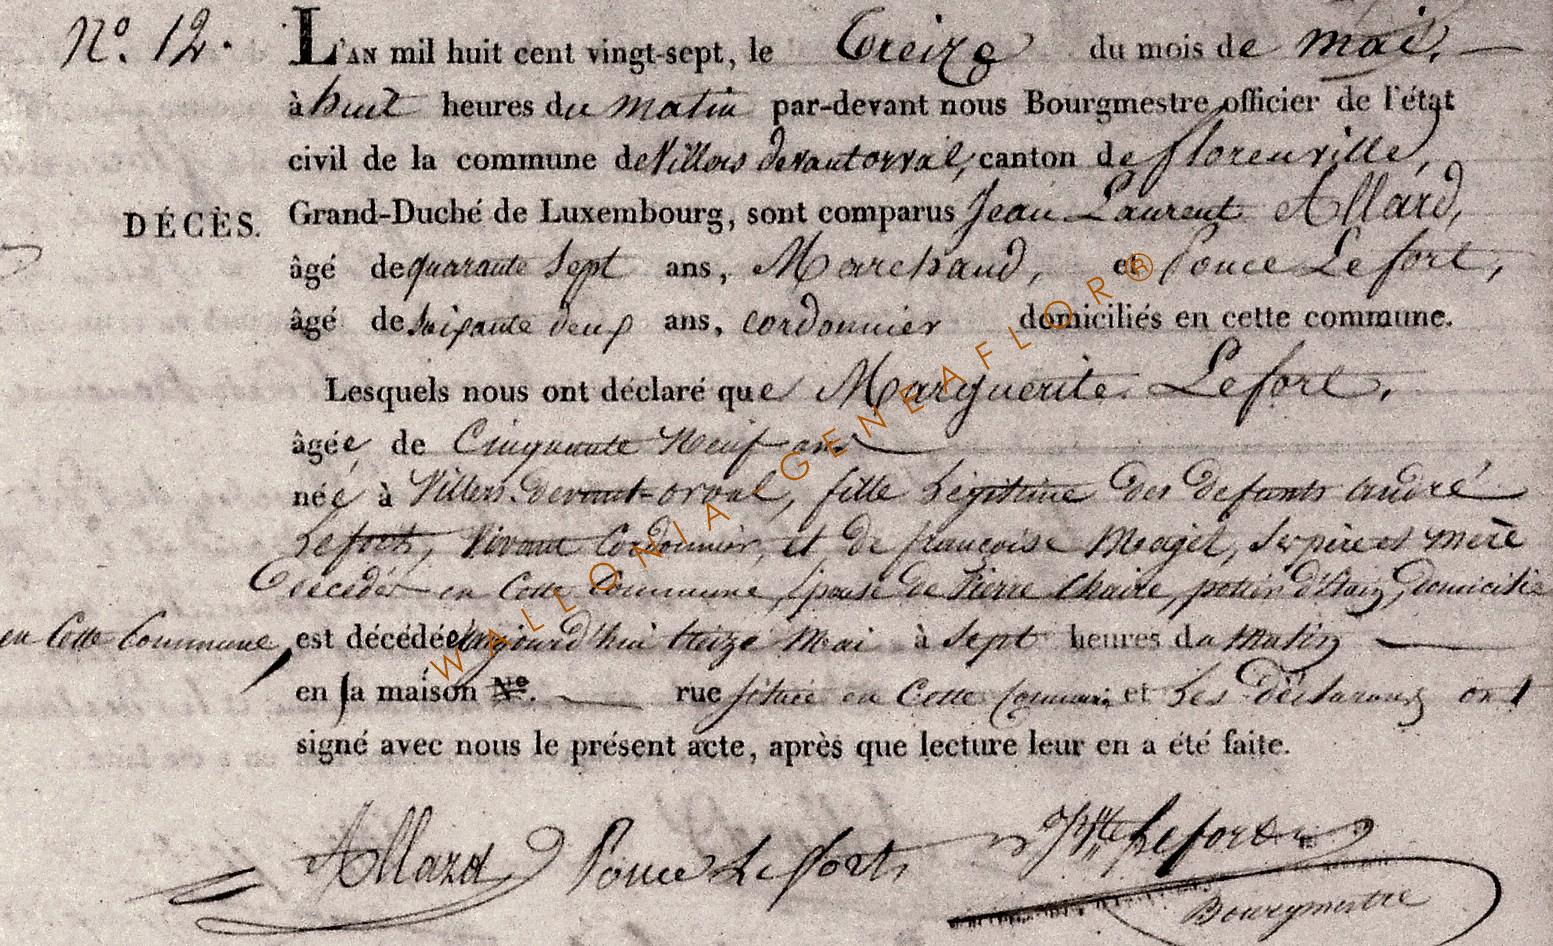 N.o 12. L'AN mil huit cent vingt-sept, le Treize du mois de mai,
à huit heures du matin par-devant nous Bourgmestre officier de l'état
civil de la commune de Villers devant orval, canton de florenville,
DÉCÈS. Grand-Duché de Luxembourg, sont comparus Jean Laurent Allard,
âgé de quarante Sept ans, Marchand, et Ponce Lefort,
âgé de soixante deux ans, cordonnier domiciliés en cette commune.
Lesquels nous ont déclaré que Marguerite Lefort,
âgée de Cinquante Neuf ans
née à Villers-devant-orval, fille Légitime des defunts andré
Lefort, Vivant Cordonnier, et de françoise Maget, Ses père et mère
Décédés en Cette Commune, Epouse de Pierre Chaire, potier d'Etain, domicilié
en Cette Commune, est décédée aujourd'hui treize Mai à Sept heures du Matin
en sa maison No. rue située en Cette Commune et Les déclarans ont
signé avec nous le présent acte, après que lecture leur en a été faite.
Allard Ponce Lefort Lefort
Bourgmestre
WALLONIA GENEAFLOR®